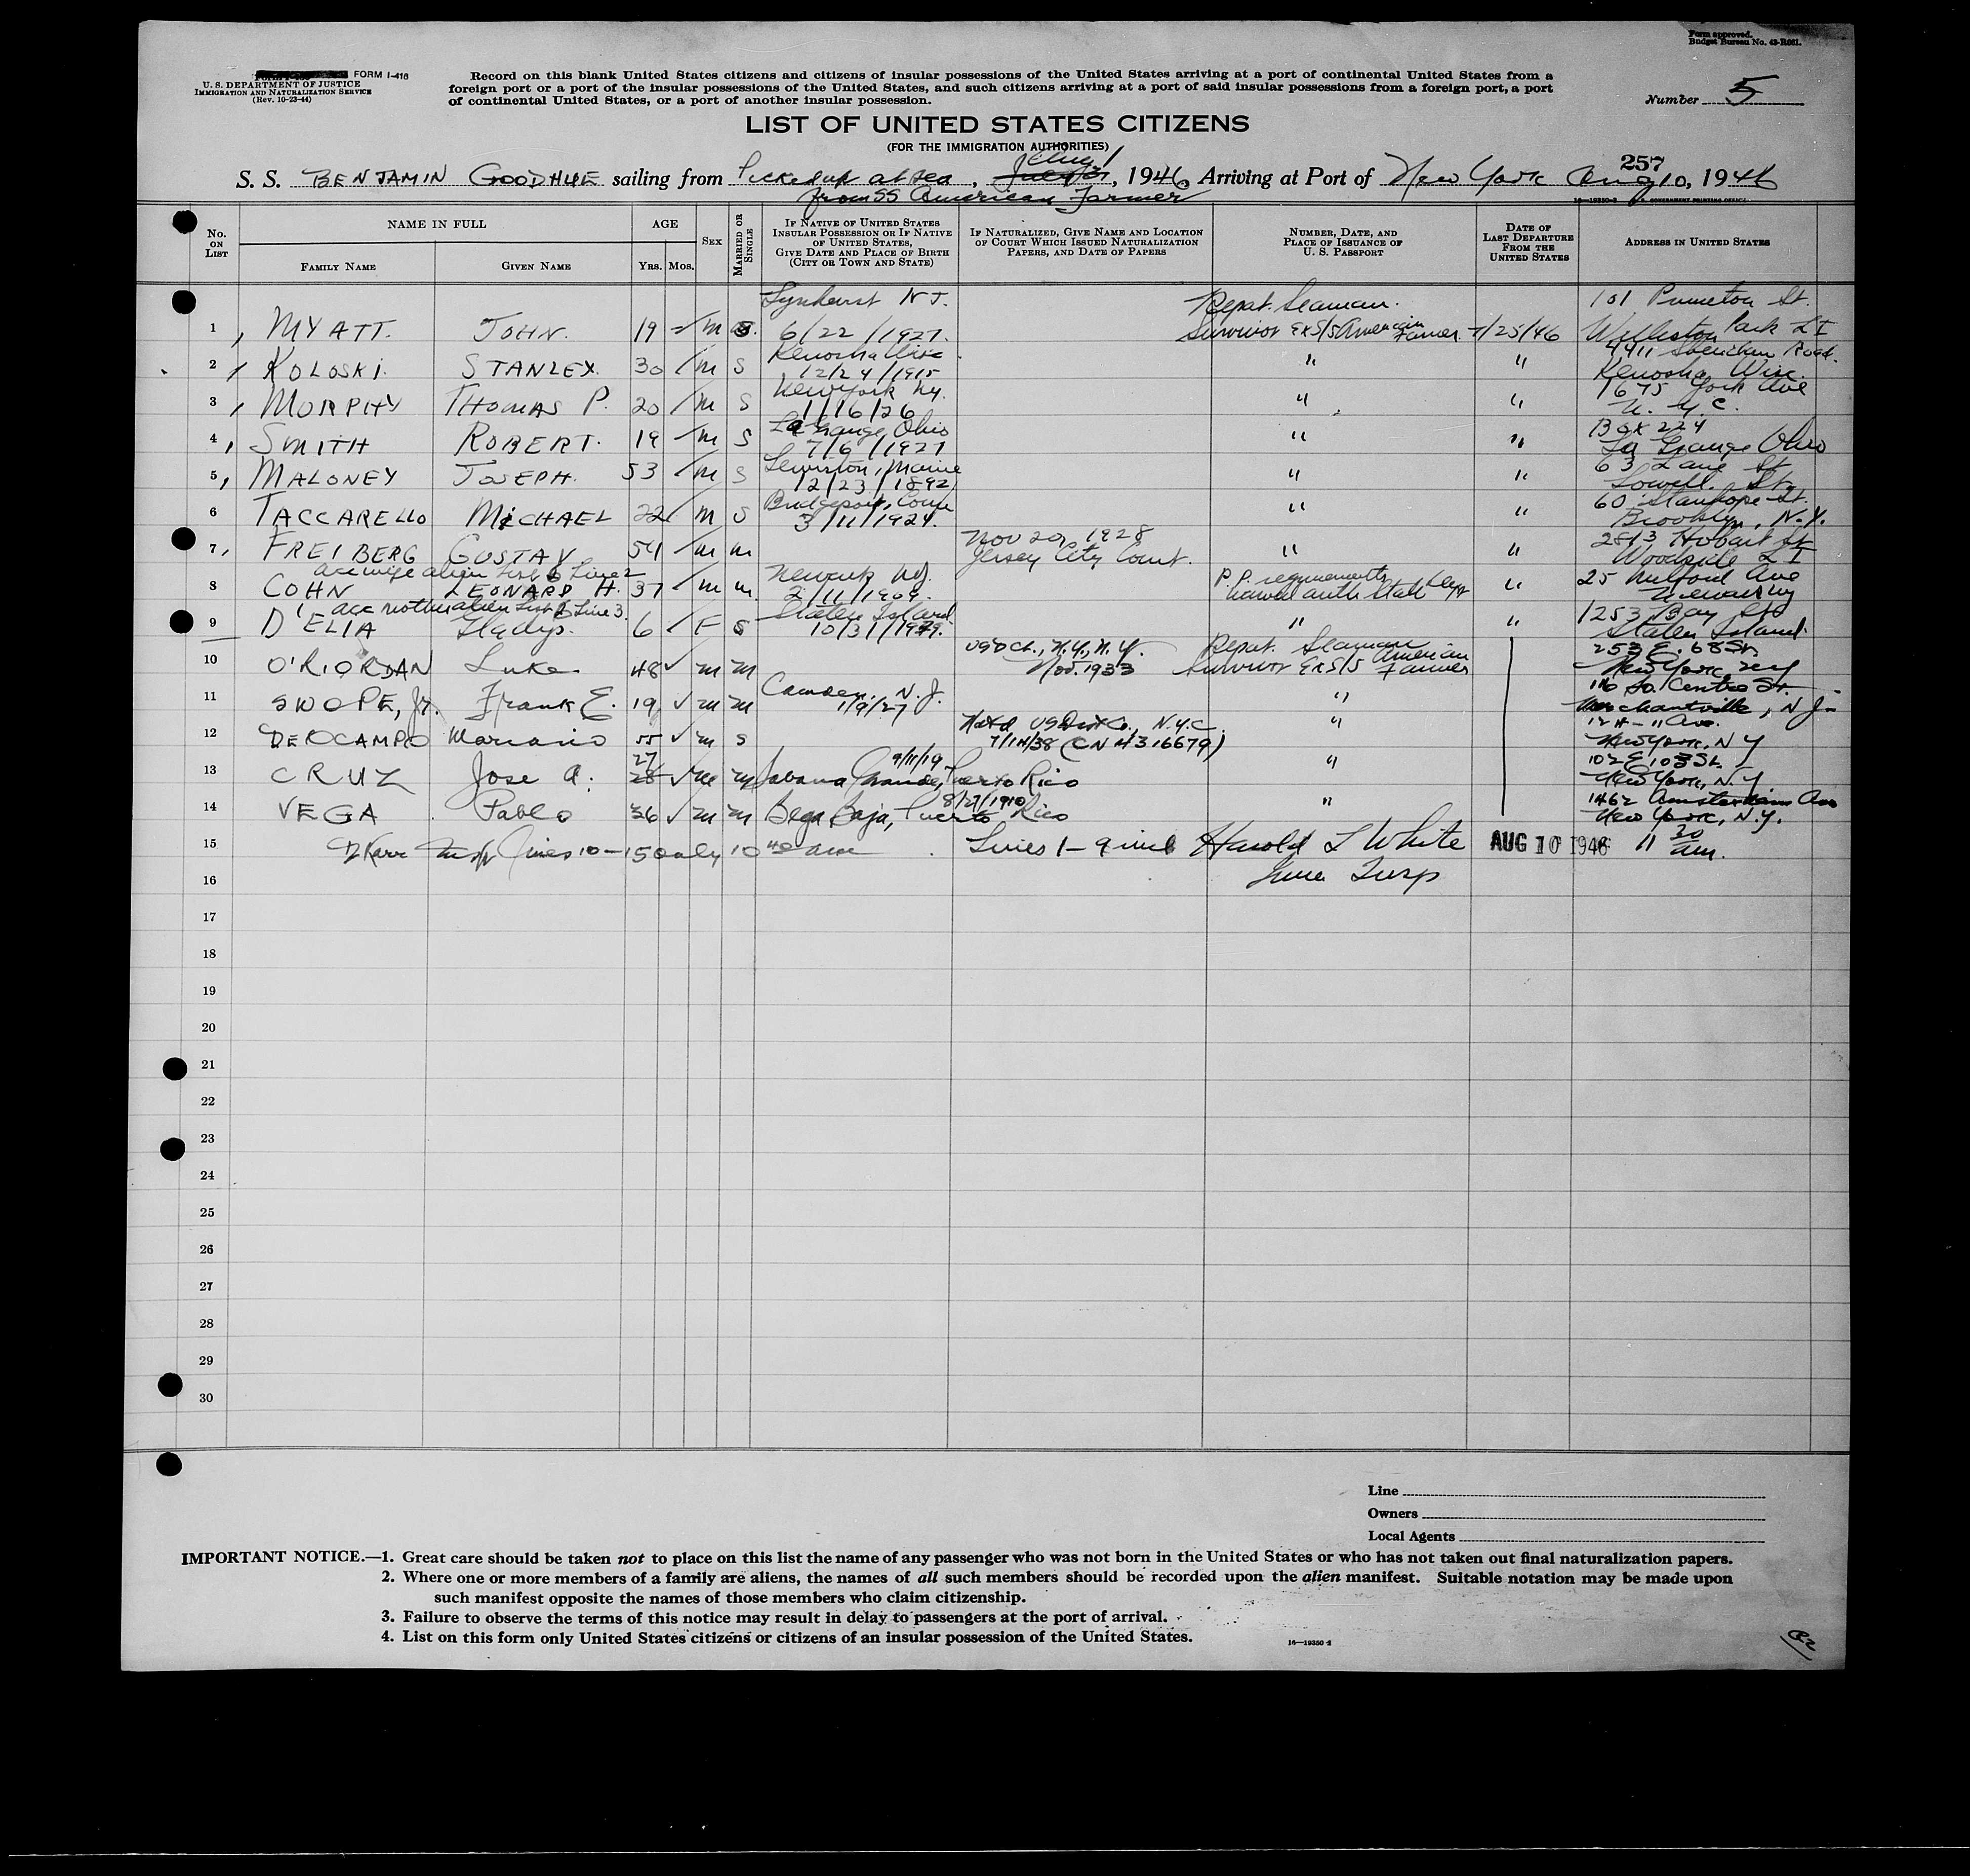 Form approved.
Budget Bureau No. 43-R081.
FORM I-416
U. S. DEPARTMENT OF JUSTICE
IMMIGRATION AND NATURALIZATION SERVICE
(Rev. 10-23-44)
Record on this blank United States citizens and citizens of insular possessions of the United States arriving at a port of continental United States from a
foreign port or a port of the insular possessions of the United States, and such citizens arriving at a port of said insular possessions from a foreign port, a port
of continental United States, or a port of another insular possession.
Number 5
LIST OF UNITED STATES CITIZENS
(FOR THE IMMIGRATION AUTHORITIES)
257
S. S. BENJAMIN GOODHUE sailing from Picked up at sea, Aug 1, 1946, Arriving at Port of New York Aug 10, 1946
from SS American Farmer
No. ON LIST
NAME IN FULL
FAMILY NAME
GIVEN NAME
AGE
YRS. MOS.
SEX
MARRIED OR SINGLE
IF NATIVE OF UNITED STATES INSULAR POSSESSION OR IF NATIVE OF UNITED STATES, GIVE DATE AND PLACE OF BIRTH (CITY OR TOWN AND STATE)
IF NATURALIZED, GIVE NAME AND LOCATION OF COURT WHICH ISSUED NATURALIZATION PAPERS, AND DATE OF PAPERS
NUMBER, DATE, AND PLACE OF ISSUANCE OF U. S. PASSPORT
DATE OF LAST DEPARTURE FROM THE UNITED STATES
ADDRESS IN UNITED STATES
Lynhurst N J. Repat. Seaman. 101 St.
1 MYATT. JOHN. 19 M S. 6/22/1927. Survivor ex S/S American Farmer 7/25/46 Williston Park L I
Kenosha Wisc 4411 Sheridan Road.
2 KOLOSKI. STANLEY. 30 M S 12/24/1915 " " Kenosha, Wisc.
New York Ny. 1675 York Ave
3 MURPHY THOMAS P. 20 M S 1/16/26 " " N. Y. C.
La Grange, Ohio Box 224
4 SMITH ROBERT. 19 M S 7/6/1927 " " La Grange Ohio
Lewiston, Maine 63 Lane St
5 MALONEY JOSEPH. 53 M S 12/23/1892 " " Lowell. St.
Bridgeport, Conn 60 Stanhope St.
6 TACCARELLO MICHAEL 22 M S 3/11/1924. " " Brooklyn, N.Y.
Nov 20, 1928 2813 Hobart St
7 FREIBERG GUSTAV 54 M M Jersey City Court. " " Woodside L I
acc wife alien List 6 Line 2 Newark NJ. P.P. requirements 25 Milford Ave
8 COHN LEONARD H. 37 M M. 2/11/1909. waived auth State Dept " Newark NJ
acc mother alien List 6 Line 3 Staten Island 1253 Bay St
9 D'ELIA Gladys. 6 F S 10/31/1939. " " Staten Island.
USDCt., N.Y., N.Y. Repat. Seaman 253 E. 68 St.
10 O'RIORDAN Luke 48 M M Nov. 1933 Survivor ex S/S American Farmer New York, NY
Camden, N. J. 116 So. Centre St.
11 SWOPE, Jr. Frank E. 19 M M 1/9/27 " Merchantville, N J
Natd US Dist Co., N.Y.C. 124-11 Ave.
12 DEOCAMPO Mariano 55 M S 7/14/38 (CN 4316679) " New York, N Y
27 9/11/19 102 E 103 St.
13 CRUZ Jose A. 28 M M Sabana Grande, Puerto Rico " New York, N.Y
8/27/1910 1462 Amsterdam Ave
14 VEGA Pablo 36 M M Bega Baja, Puerto Rico " New York, N.Y.
15 Insp Lines 10-15 only 10 40 am Lines 1-9 incl Harold L White AUG 10 1946 11 30 am.
16 Imm Insp
17
18
19
20
21
22
23
24
25
26
27
28
29
30
Line
Owners
Local Agents
IMPORTANT NOTICE.—1. Great care should be taken not to place on this list the name of any passenger who was not born in the United States or who has not taken out final naturalization papers.
2. Where one or more members of a family are aliens, the names of all such members should be recorded upon the alien manifest. Suitable notation may be made upon
such manifest opposite the names of those members who claim citizenship.
3. Failure to observe the terms of this notice may result in delay to passengers at the port of arrival.
4. List on this form only United States citizens or citizens of an insular possession of the United States.
16—19350-2